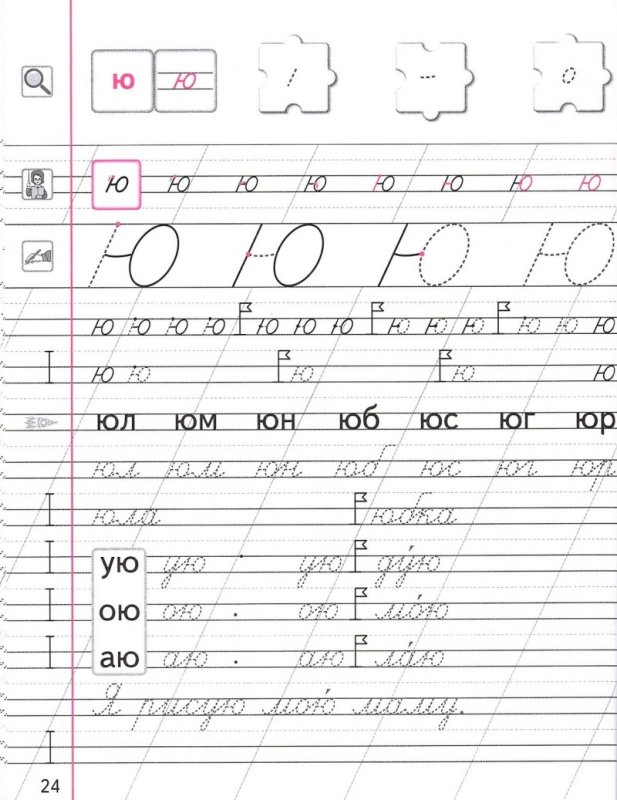 ю ю
ю ю ю ю ю ю ю ю
ю ю ю ю
ю ю ю ю ю ю ю ю ю ю ю ю ю
ю ю ю ю ю
юл юм юн юб юс юг юр
юл юм юн юб юс юг юр
юла юбка
ую ую ую ду́ю
ою ою ою мо́ю
аю аю аю ла́ю
Я рисую мою́ маму.
24